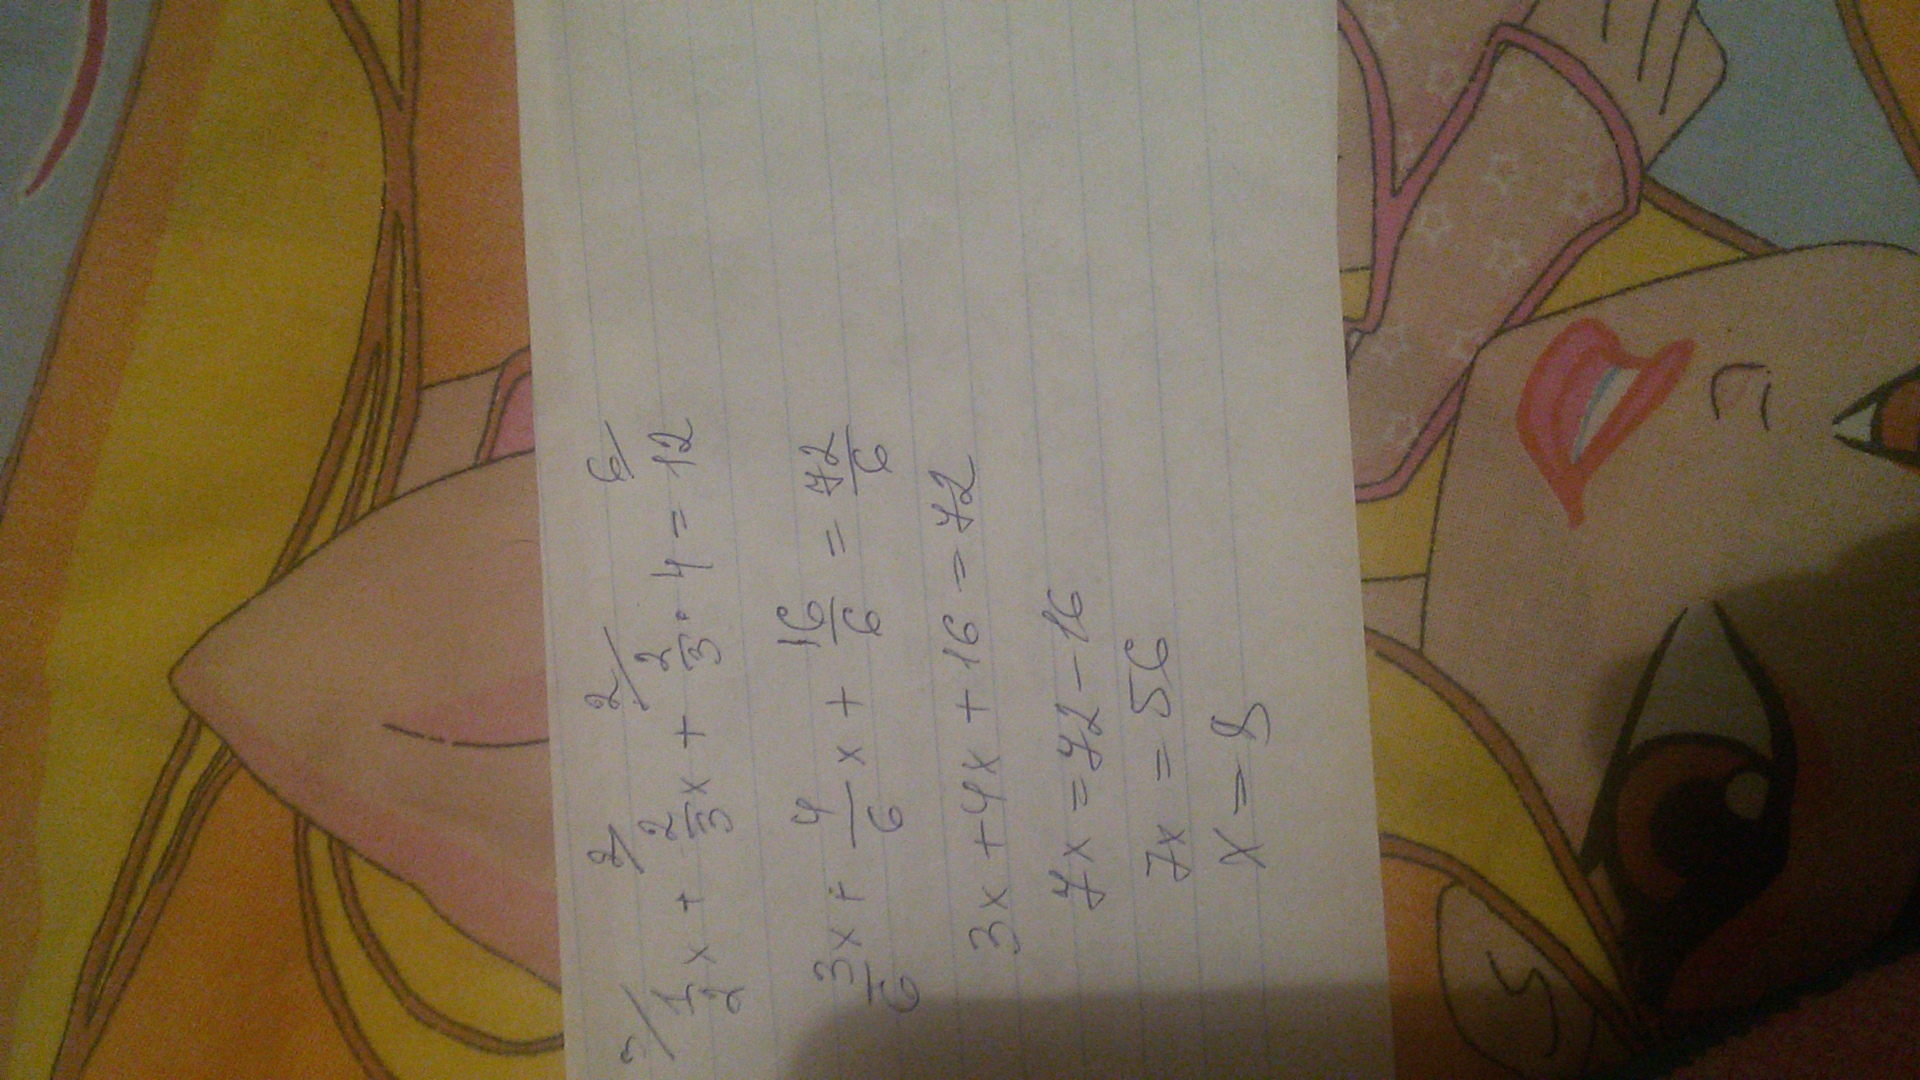 3/ 2/ 2/ 6/
1/2 x + 2/3 x + 2/3 · 4 = 12
3x/6 + 4/6 x + 16/6 = 72/6
3x + 4x + 16 = 72
7x = 72 - 16
7x = 56
x = 8